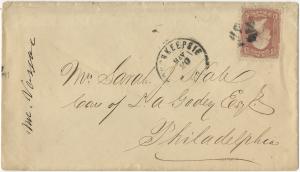 KEEPSIE
NOV
20
Mrs Sarah J Hale
care of L A Godey Esq
Philadelphia